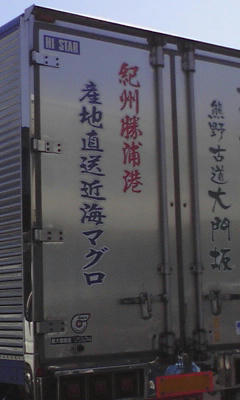 HI STAR
熊野古道大門坂
紀州勝浦港
産地直送近海マグロ